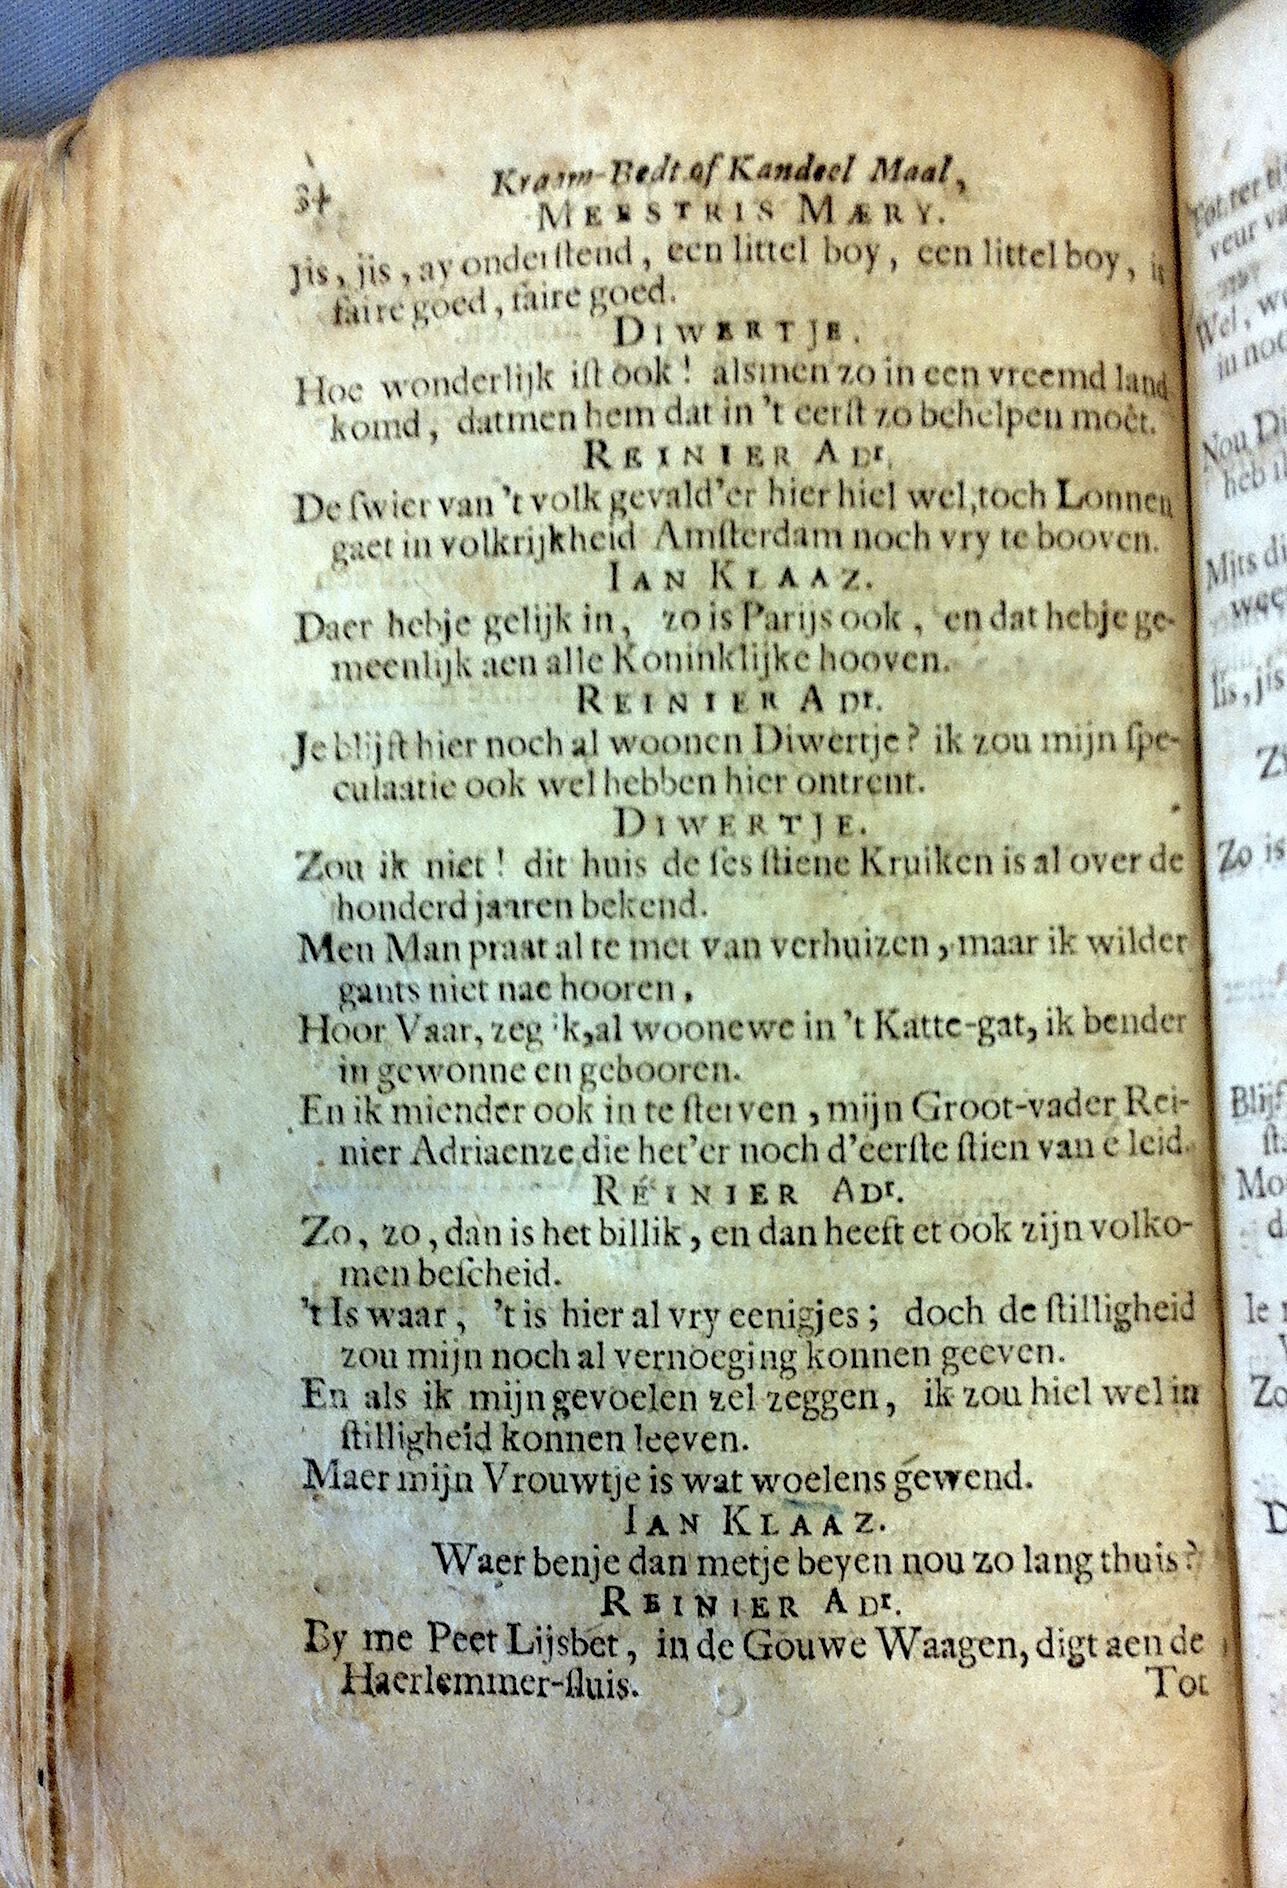 34 Kraam-Bedt of Kandeel Maal,
MEESTRIS MÆRY.
Jis, jis, ay onderſtend, een littel boy, een littel boy, is
faire goed, faire goed.
DIWERTJE.
Hoe wonderlijk iſt ook! alsmen zo in een vreemd land
komd, datmen hem dat in 't eerſt zo behelpen moet.
REINIER ADr.
De ſwier van 't volk gevald'er hier hiel wel, toch Lonnen
gaet in volkrijkheid Amſterdam noch vry te booven.
IAN KLAAZ.
Daer hebje gelijk in, zo is Parijs ook, en dat hebje ge-
meenlijk aen alle Koninklijke hooven.
REINIER ADr.
Je blijft hier noch al woonen Diwertje? ik zou mijn ſpe-
culaatie ook wel hebben hier ontrent.
DIWERTJE.
Zou ik niet! dit huis de ſes ſtiene Kruiken is al over de
honderd jaaren bekend.
Men Man praat al te met van verhuizen, maar ik wilder
gants niet nae hooren,
Hoor Vaar, zeg 'k, al woonewe in 't Katte-gat, ik bender
in gewonne en gebooren.
En ik miender ook in te ſterven, mijn Groot-vader Rei-
nier Adriaenze die het'er noch d'eerſte ſtien van e leid.
REINIER ADr.
Zo, zo, dan is het billik, en dan heeft et ook zijn volko-
men beſcheid.
't Is waar, 't is hier al vry eenigjes; doch de ſtilligheid
zou mijn noch al vernoeging konnen geeven.
En als ik mijn gevoelen zel zeggen, ik zou hiel wel in
ſtilligheid konnen leeven.
Maer mijn Vrouwtje is wat woelens gewend.
IAN KLAAZ.
Waer benje dan metje beyen nou zo lang thuis?
REINIER ADr.
By me Peet Lijsbet, in de Gouwe Waagen, digt aen de
Haerlemmer-ſluis. Tot